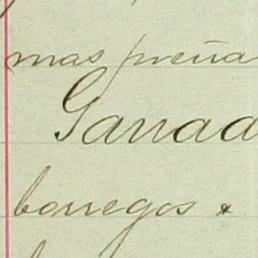 mas preña
Ganad
borregos x